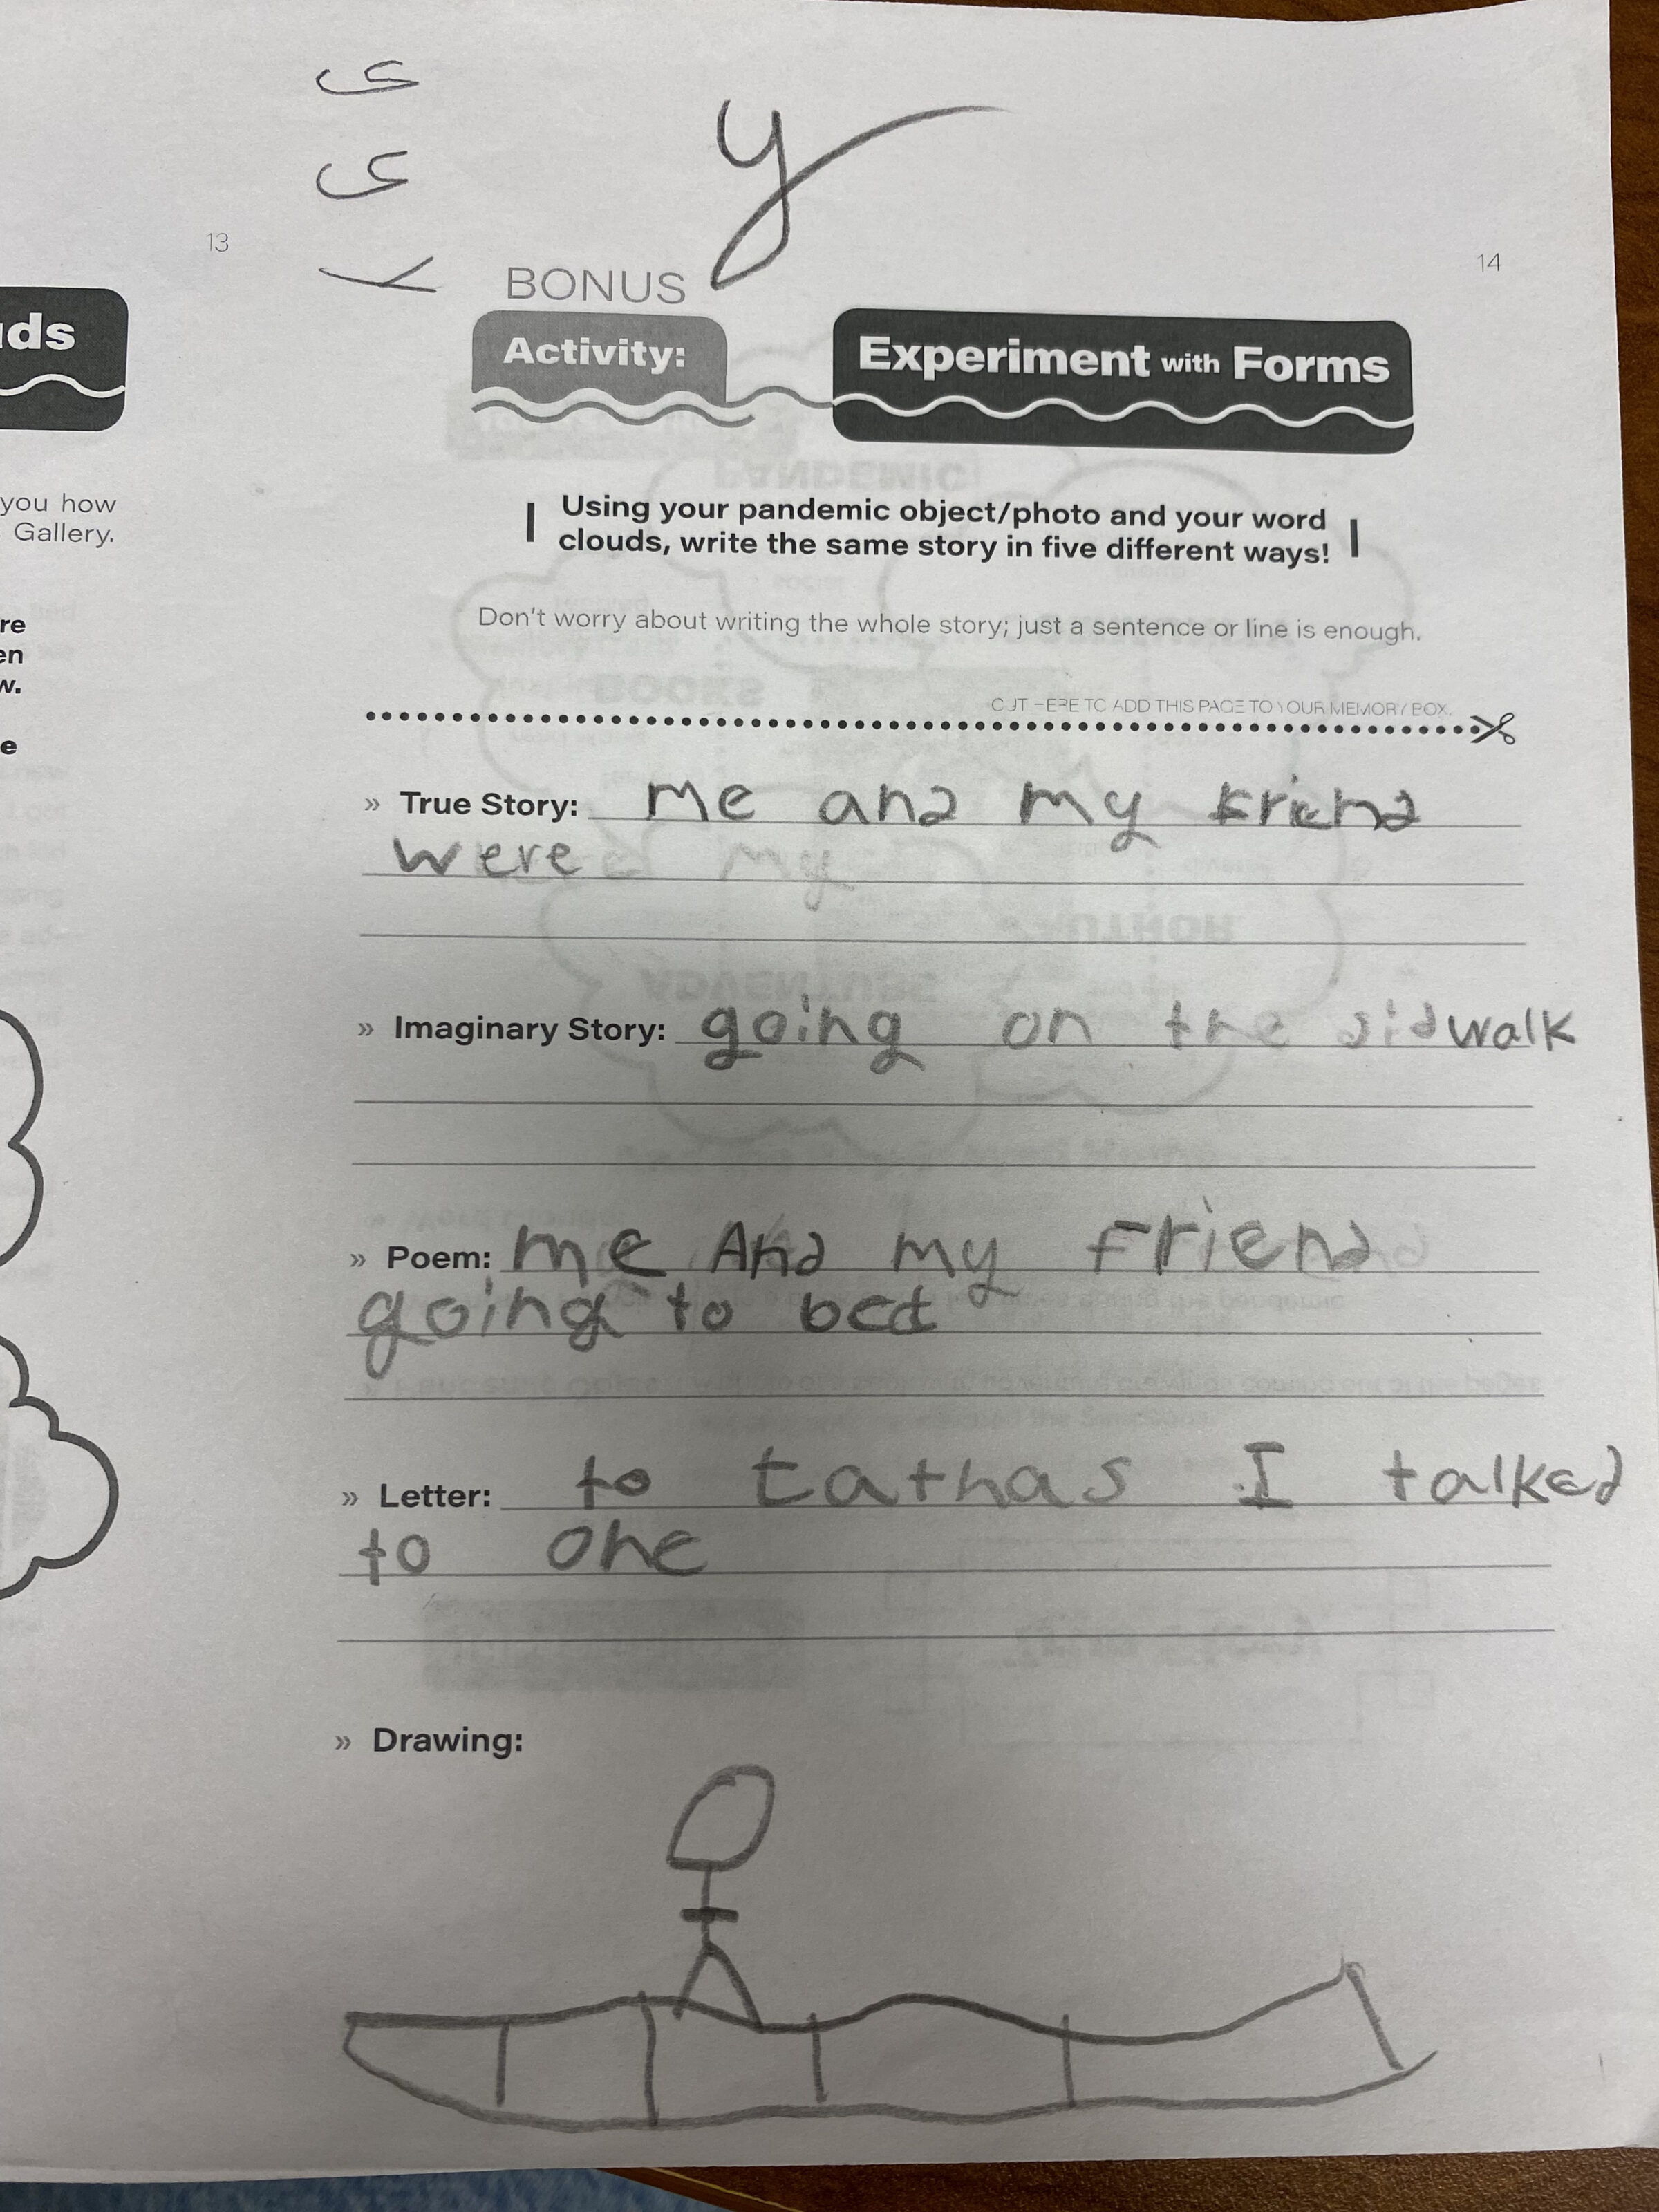 13
14
y
BONUS
Activity:
Experiment with Forms
you how
Gallery.
Using your pandemic object/photo and your word
clouds, write the same story in five different ways!
Don't worry about writing the whole story; just a sentence or line is enough.
CUT HERE TO ADD THIS PAGE TO YOUR MEMORY BOX.
» True Story: me and my Friend
were
» Imaginary Story: going on the sidwalk
» Poem: me And my Friend
going to bed
» Letter: to tathas I talked
to one
» Drawing: